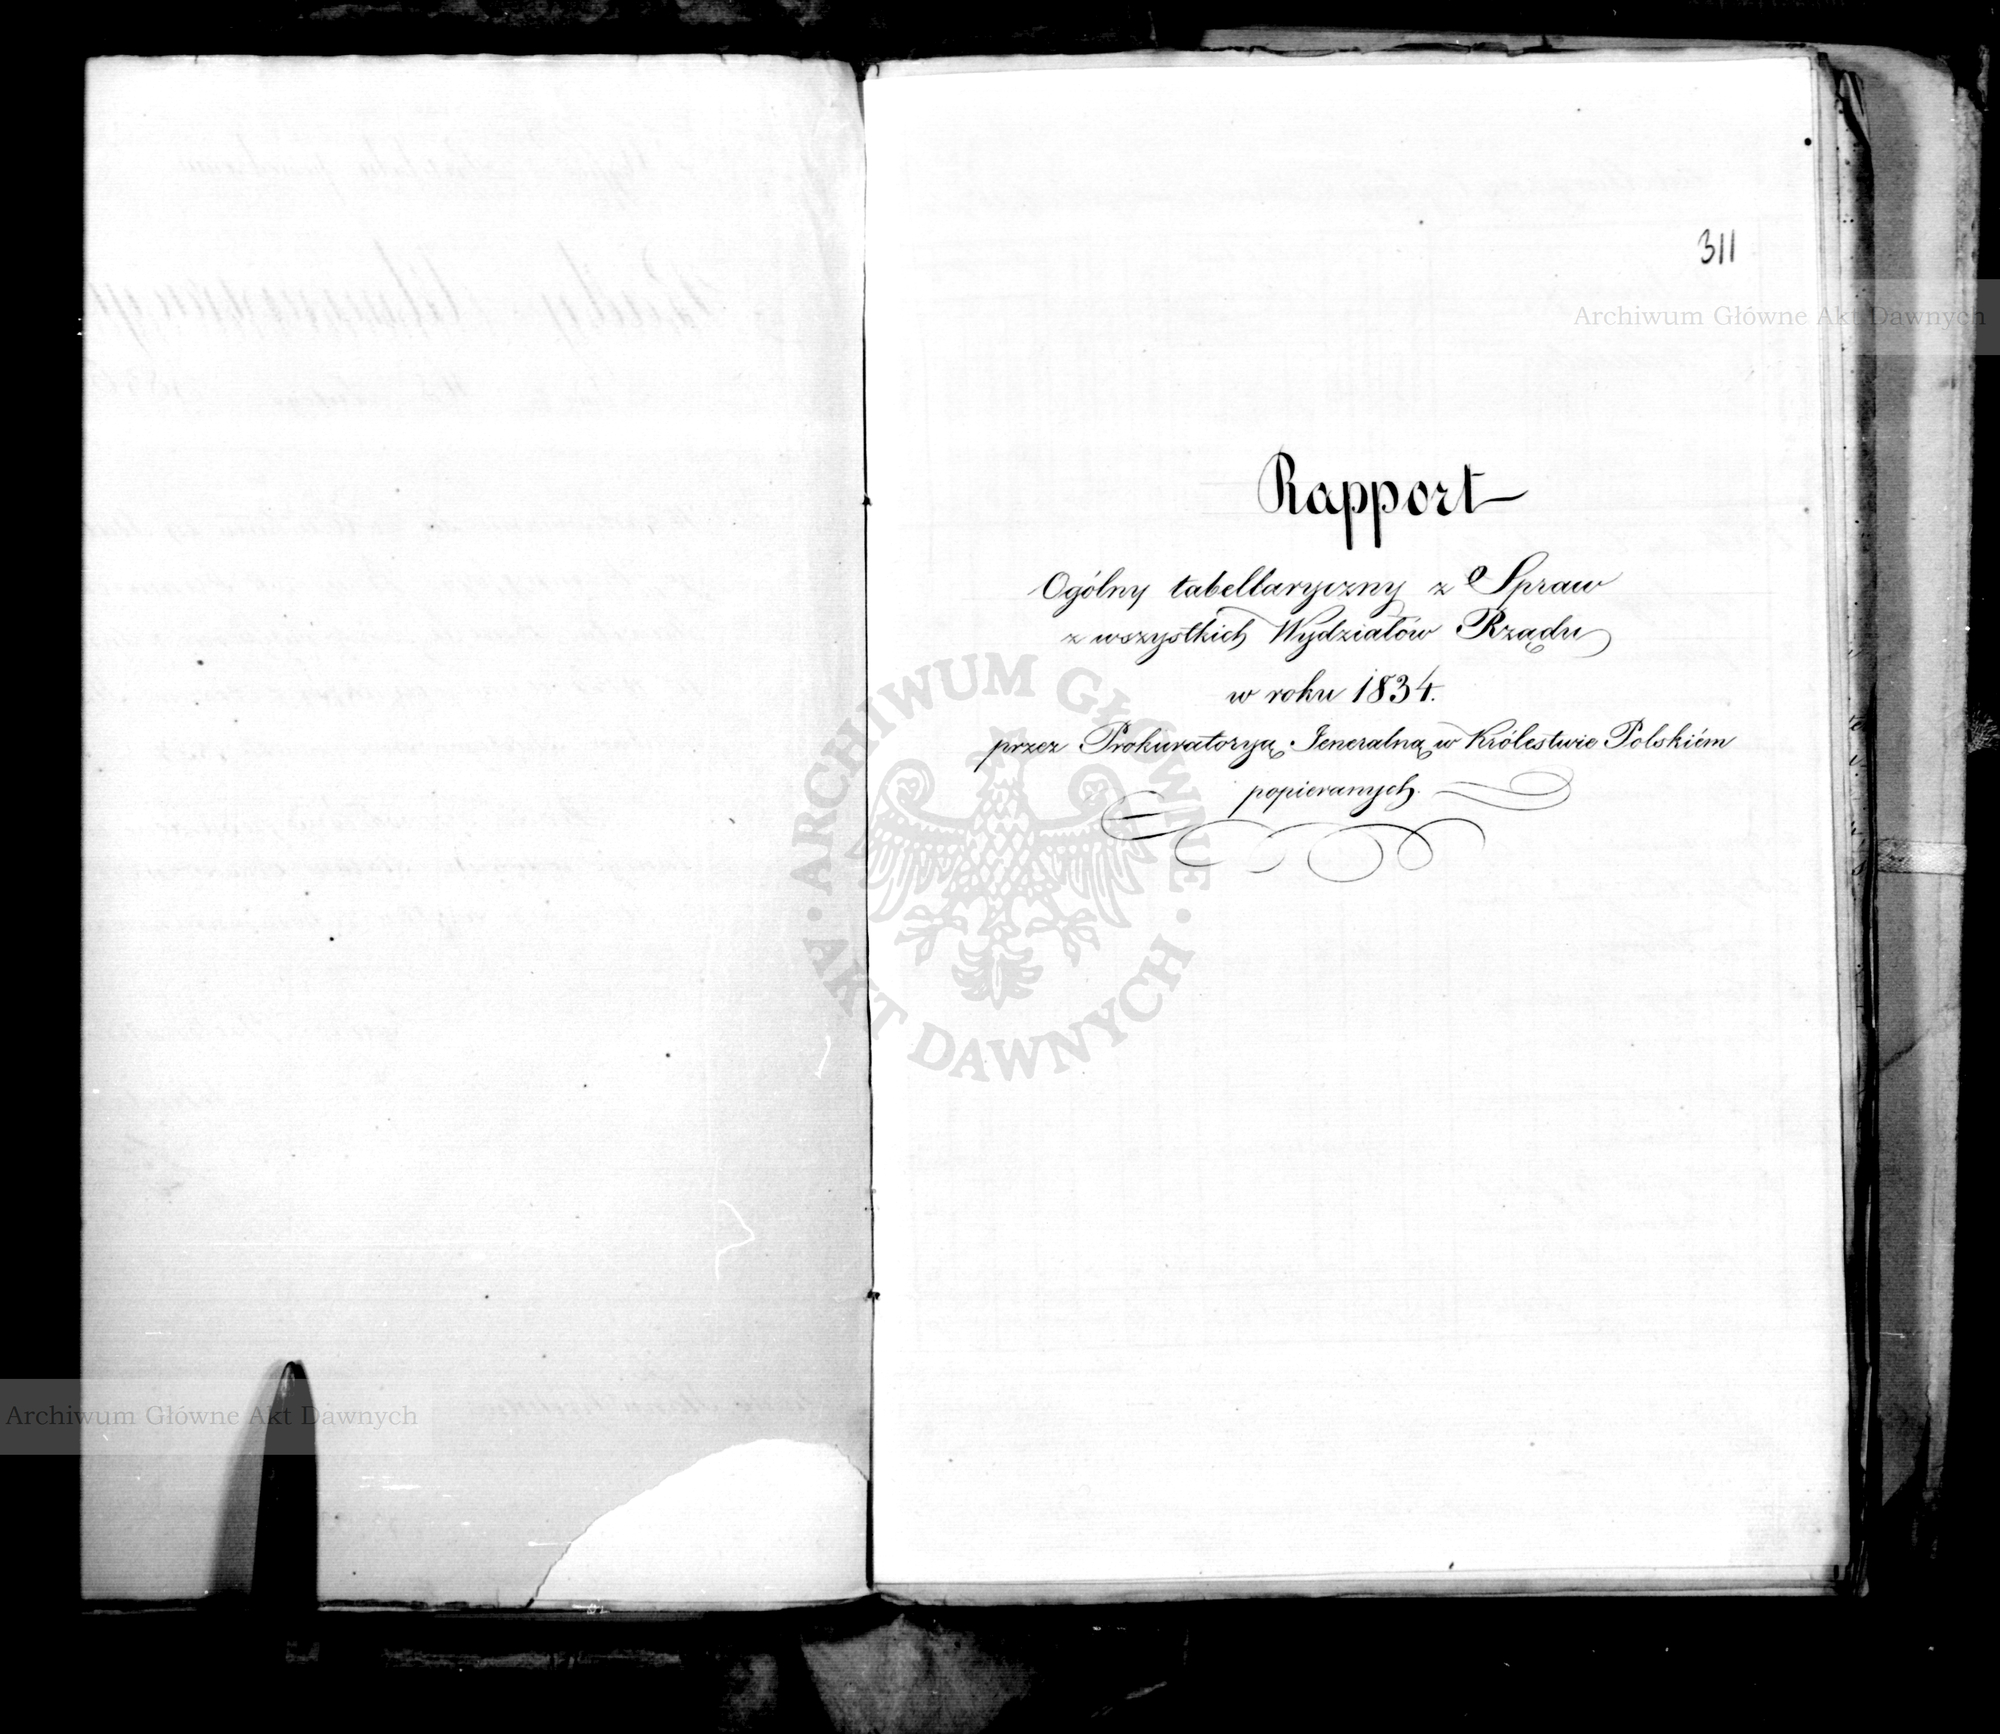 311
Archiwum Główne Akt Dawnych
Rapport
Ogólny tabellaryczny z Spraw
z wszystkich Wydziałów Rządu
w roku 1834.
przez Prokuratoryą Jeneralną w Królestwie Polskiém
popieranych.
ARCHIWUM GŁÓWNE AKT DAWNYCH
Archiwum Główne Akt Dawnych